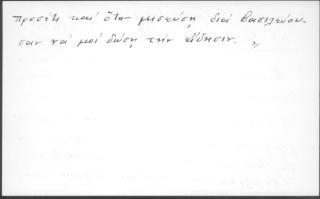 προσέτι καί ὅταν μισεύσῃ διά βασιλεύου-
σαν νά μοί δώσῃ τήν εἴδησιν. »